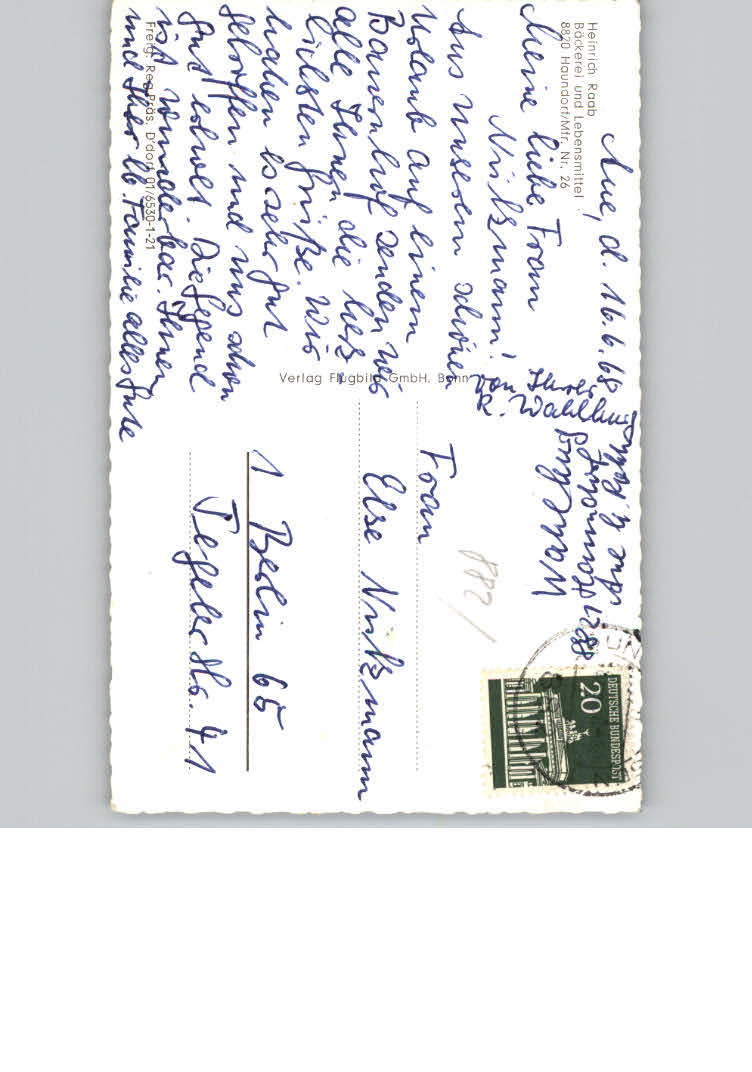 Heinrich Raab
Bäckerei und Lebensmittel
8820 Haundorf/Mfr. Nr. 26
Aue, d. 16.6.68
Meine liebe Frau
Nitzmann!
Aus unserem schönen
Urlaub auf einem
Bauernhof senden wir
alle Ihnen die herz-
lichsten Grüße. Wir
haben es sehr gut
getroffen und uns schon
gut erholt. Die Gegend
ist wunderbar. Ihnen
und Ihrer lb. Familie alles Gute
Ihre
von
Freig. Reg.Präs. D'dorf 01/6530-1-21
Verlag Flugbild GmbH. Bonn
DEUTSCHE BUNDESPOST
20
882/
Frau
Else Nitzmann
1 Berlin 65
Tegeler Str. 41